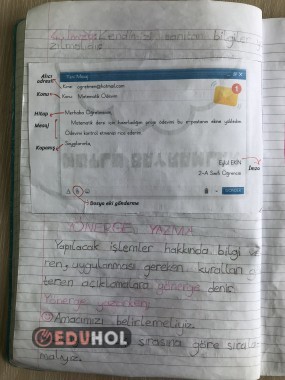 kendimizi tanıtan bilgiler y
zılmalıdır.
Alıcı adresi
Yeni Mesaj
Kime: ogretmen@hotmail.com
Konu
Konu: Matematik Ödevim
1
Hitap
Merhaba Öğretmenim,
Mesaj
Matematik dersi için hazırladığım proje ödevimi bu e-postanın ekine yükledim.
Ödevimi kontrol etmenizi rica ederim.
Kapanış
Saygılarımla,
Eylül EKİN
İmza
2-A Sınıfı Öğrencisi
Dosya eki gönderme
YÖNERGE YAZMA
Yapılacak işlemler hakkında bilgi ve
ren, uygulanması gereken kuralları
teren açıklamalara yönerge denir.
Yönerge yazarken;
Amacımızı belirlemeliyiz.
sırasına göre sırala
malıyız.
EDUHOL